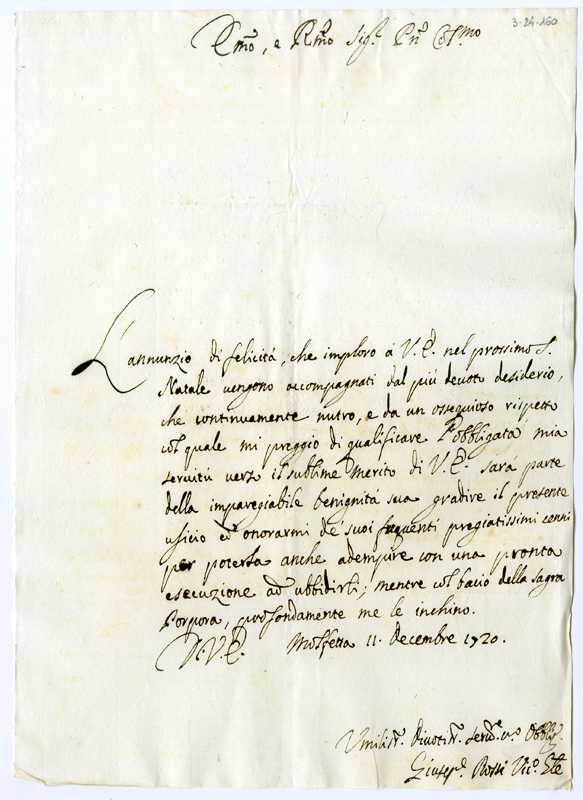 3-24-160
Em̃o, e Rm̃o Sig.r Prñ Col.mo
L'annunzio di felicitá, che imploro á V. E. nel prossimo S.
Natale vengono accompagnati dal piú devoto desiderio,
che continuamente nutro, e da un ossequioso rispetto
col quale mi preggio di qualificare l'obbligata mia
servitú verso il sublime merito di V. E. sará parte
della impareggiabile benignitá sua gradire il presente
uficio ed onorarmi de' suoi frequenti pregiatissimi cenni
per poterla anche adempire con una pronta
esecuzione ad ubbidirli; mentre col bacio della sagra
Porpora, profondamente me le inchino.
Di V. E. Molfetta 11. Decembre 1720.
Umiliss.o Divotiss.o Serid.re v.o Obblig.
Giusep.e Rossi Vic.o